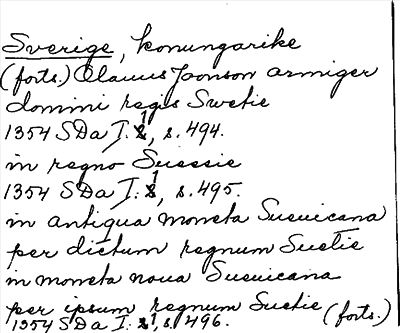 Sverige, konungarike
(forts.) Olauus Jonson armiger
domini regis Swetie
1354 SDa I:1, s. 494.
in regno Suessie
1354 SDa I:1, s. 495.
in antiqua moneta Sueuicana
per dictum regnum Suetie
in moneta noua Sueuicana
per ipsum regnum Suetie (forts.)
1354 SDa I:1, s. 496.